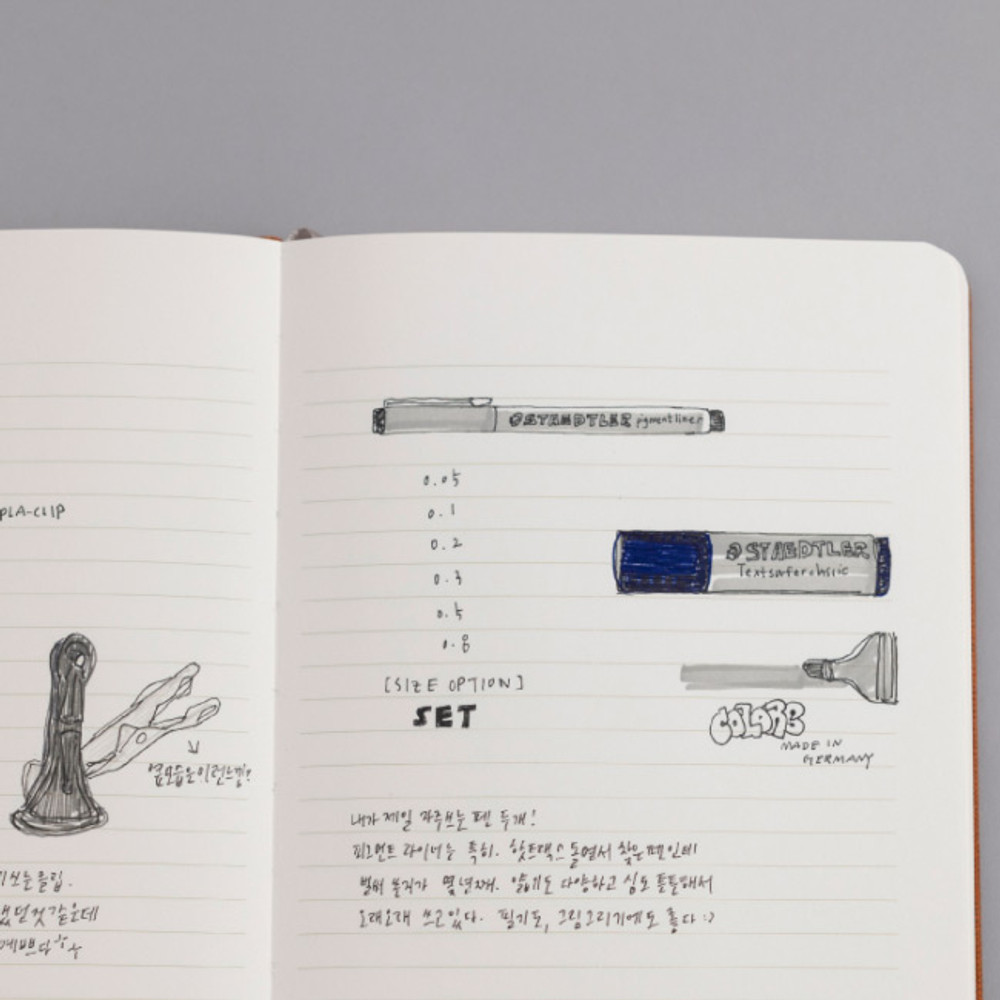 PLA-CLIP
옆모습은 이런느낌?
쓰는 클립.
했던것 같은데
예쁘다
STAEDTLER pigment liner
0.05
0.1
0.2
0.3
0.5
0.8
[SIZE OPTION]
SET
STAEDTLER
COLORS
MADE IN
GERMANY
내가 제일 자주쓰는 펜 두개!
피그먼트 라이너는 특히. 핫트랙스 돌면서 찾은 펜인데
벌써 쓴지가 몇년째. 굵기도 다양하고 심도 튼튼해서
오래오래 쓰고있다. 필기도, 그림그리기에도 좋다 :)